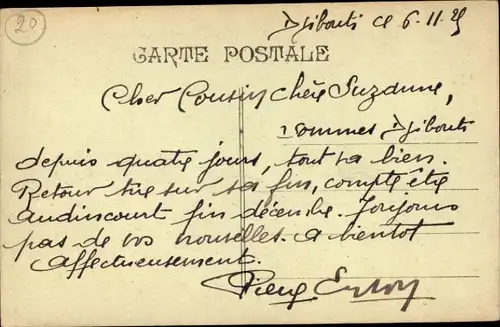 20
Djibouti ce 6.11.25
CARTE POSTALE
Cher Cousin chère Suzanne,
sommes Djibouti
depuis quatre jours, tout va bien.
Retour tire sur sa fin, compte être
audincourt fin décembre. Toujours
pas de vos nouvelles. a bientôt
affectueusement.
Pierre